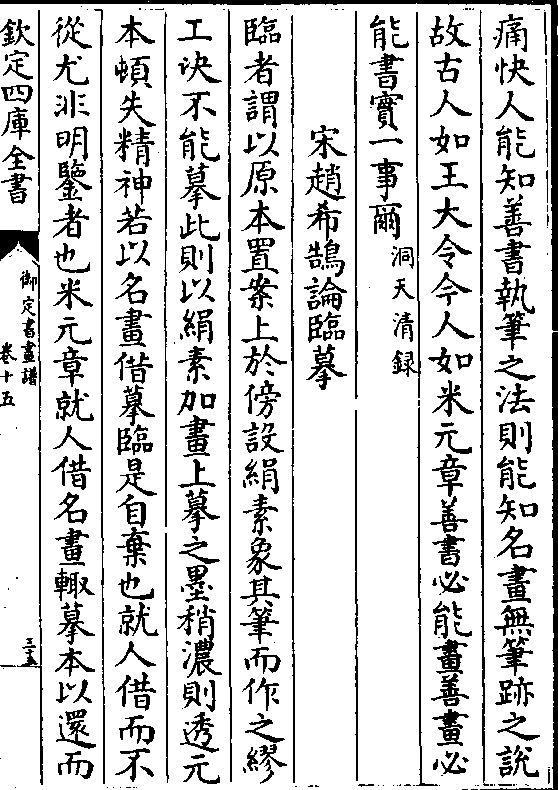 痛快人能知善書執筆之法則能知名畫無筆跡之說
故古人如王大令今人如米元章善書必能畫善畫必
能書實一事爾洞天清録
宋趙希鵠論臨摹
臨者謂以原本置案上於傍設絹素象其筆而作之繆
工决不能摹此則以絹素加畫上摹之墨稍濃則透元
本頓失精神若以名畫借摹臨是自棄也就人借而不
從尤非明鑒者也米元章就人借名畫輙摹本以還而
欽定四庫全書
御定書畫譜
卷十五
三十五